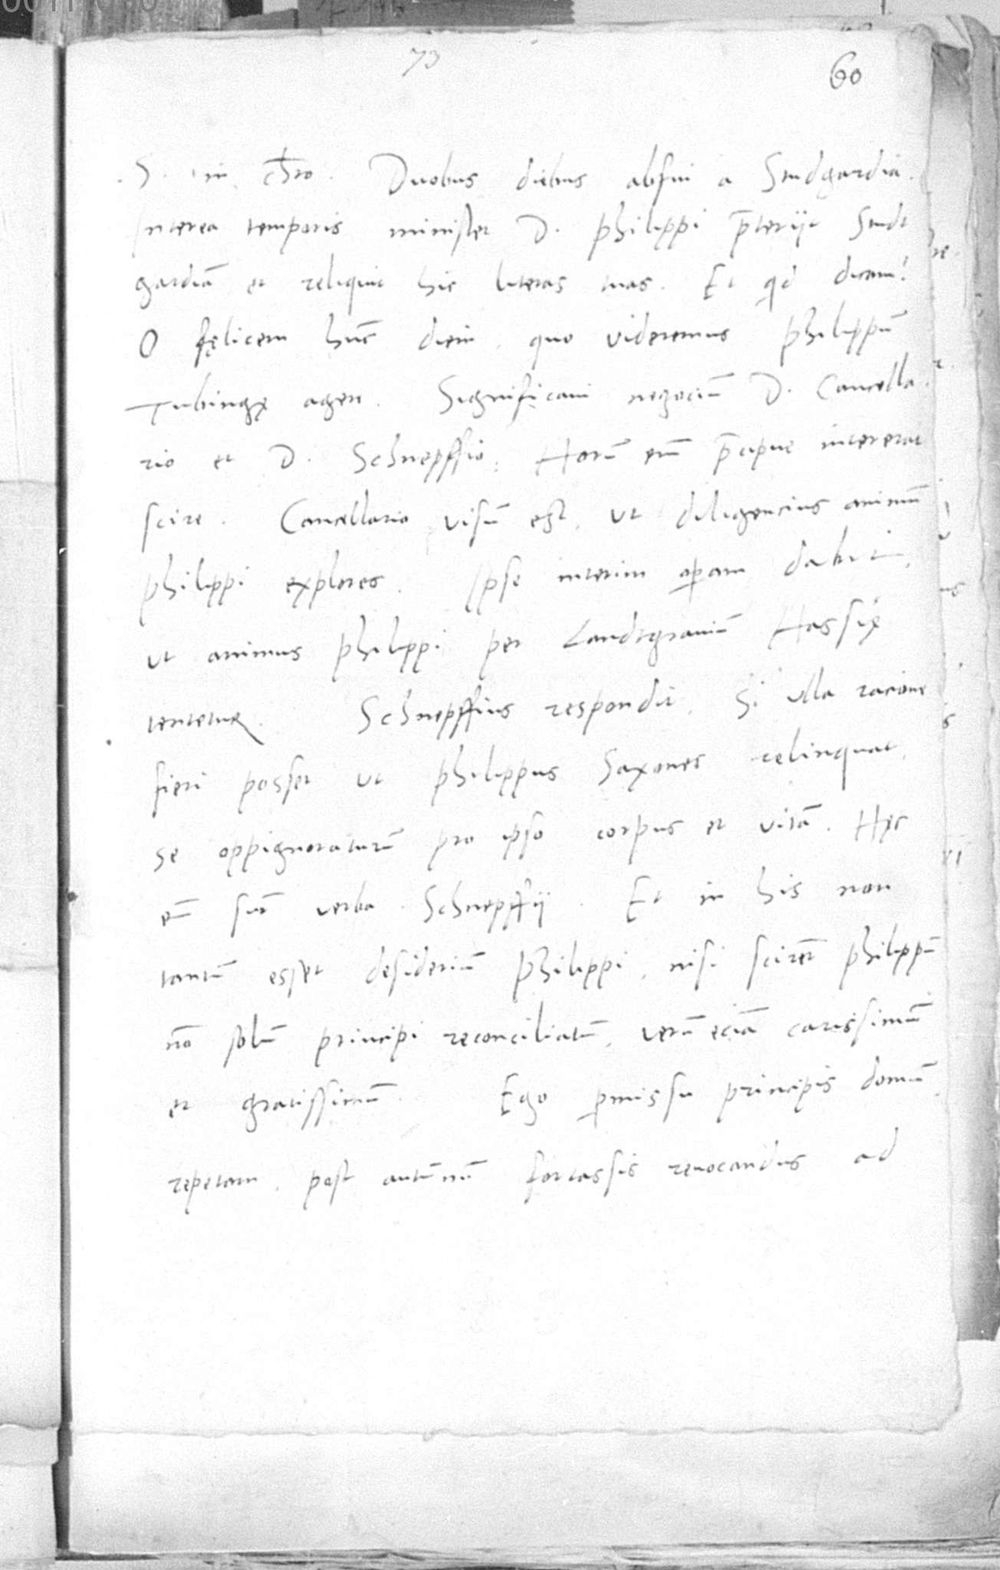 73
60
.S. in chro. Duobus diebus abfui a Studgardia.
Interea temporis minister D. philippi p̄teriit Studt
gardiā et reliquit hic literas tuas. Et qd dicam?
O fęlicem hūc diem, quo videremus philippū
Tubingę agere. Significavi negociū D. Cancella
rio et D. Schnepffio, Horū em̄ p̄cipue intererat
scire. Cancellario visū est, ut diligencius animū
philippi explores. Ipse interim operam dabit,
ut animus philippi per Landtgraviū Hassię
tentetur. Schnepffius respondit, Si ulla racione
fieri posset ut philippus Saxones relinquat,
se oppignoraturū pro ipso corpus et vitā. Hęc
em̄ sūt verba Schnepffij. Et in his non
tantū esset desideriū philippi, nisi sciret philippū
nō solū principi reconciliatū, verū eciā carissimū
et gratissimū. Ego permissu principis domū
repetam, post autūnū fortassis revocandus ad